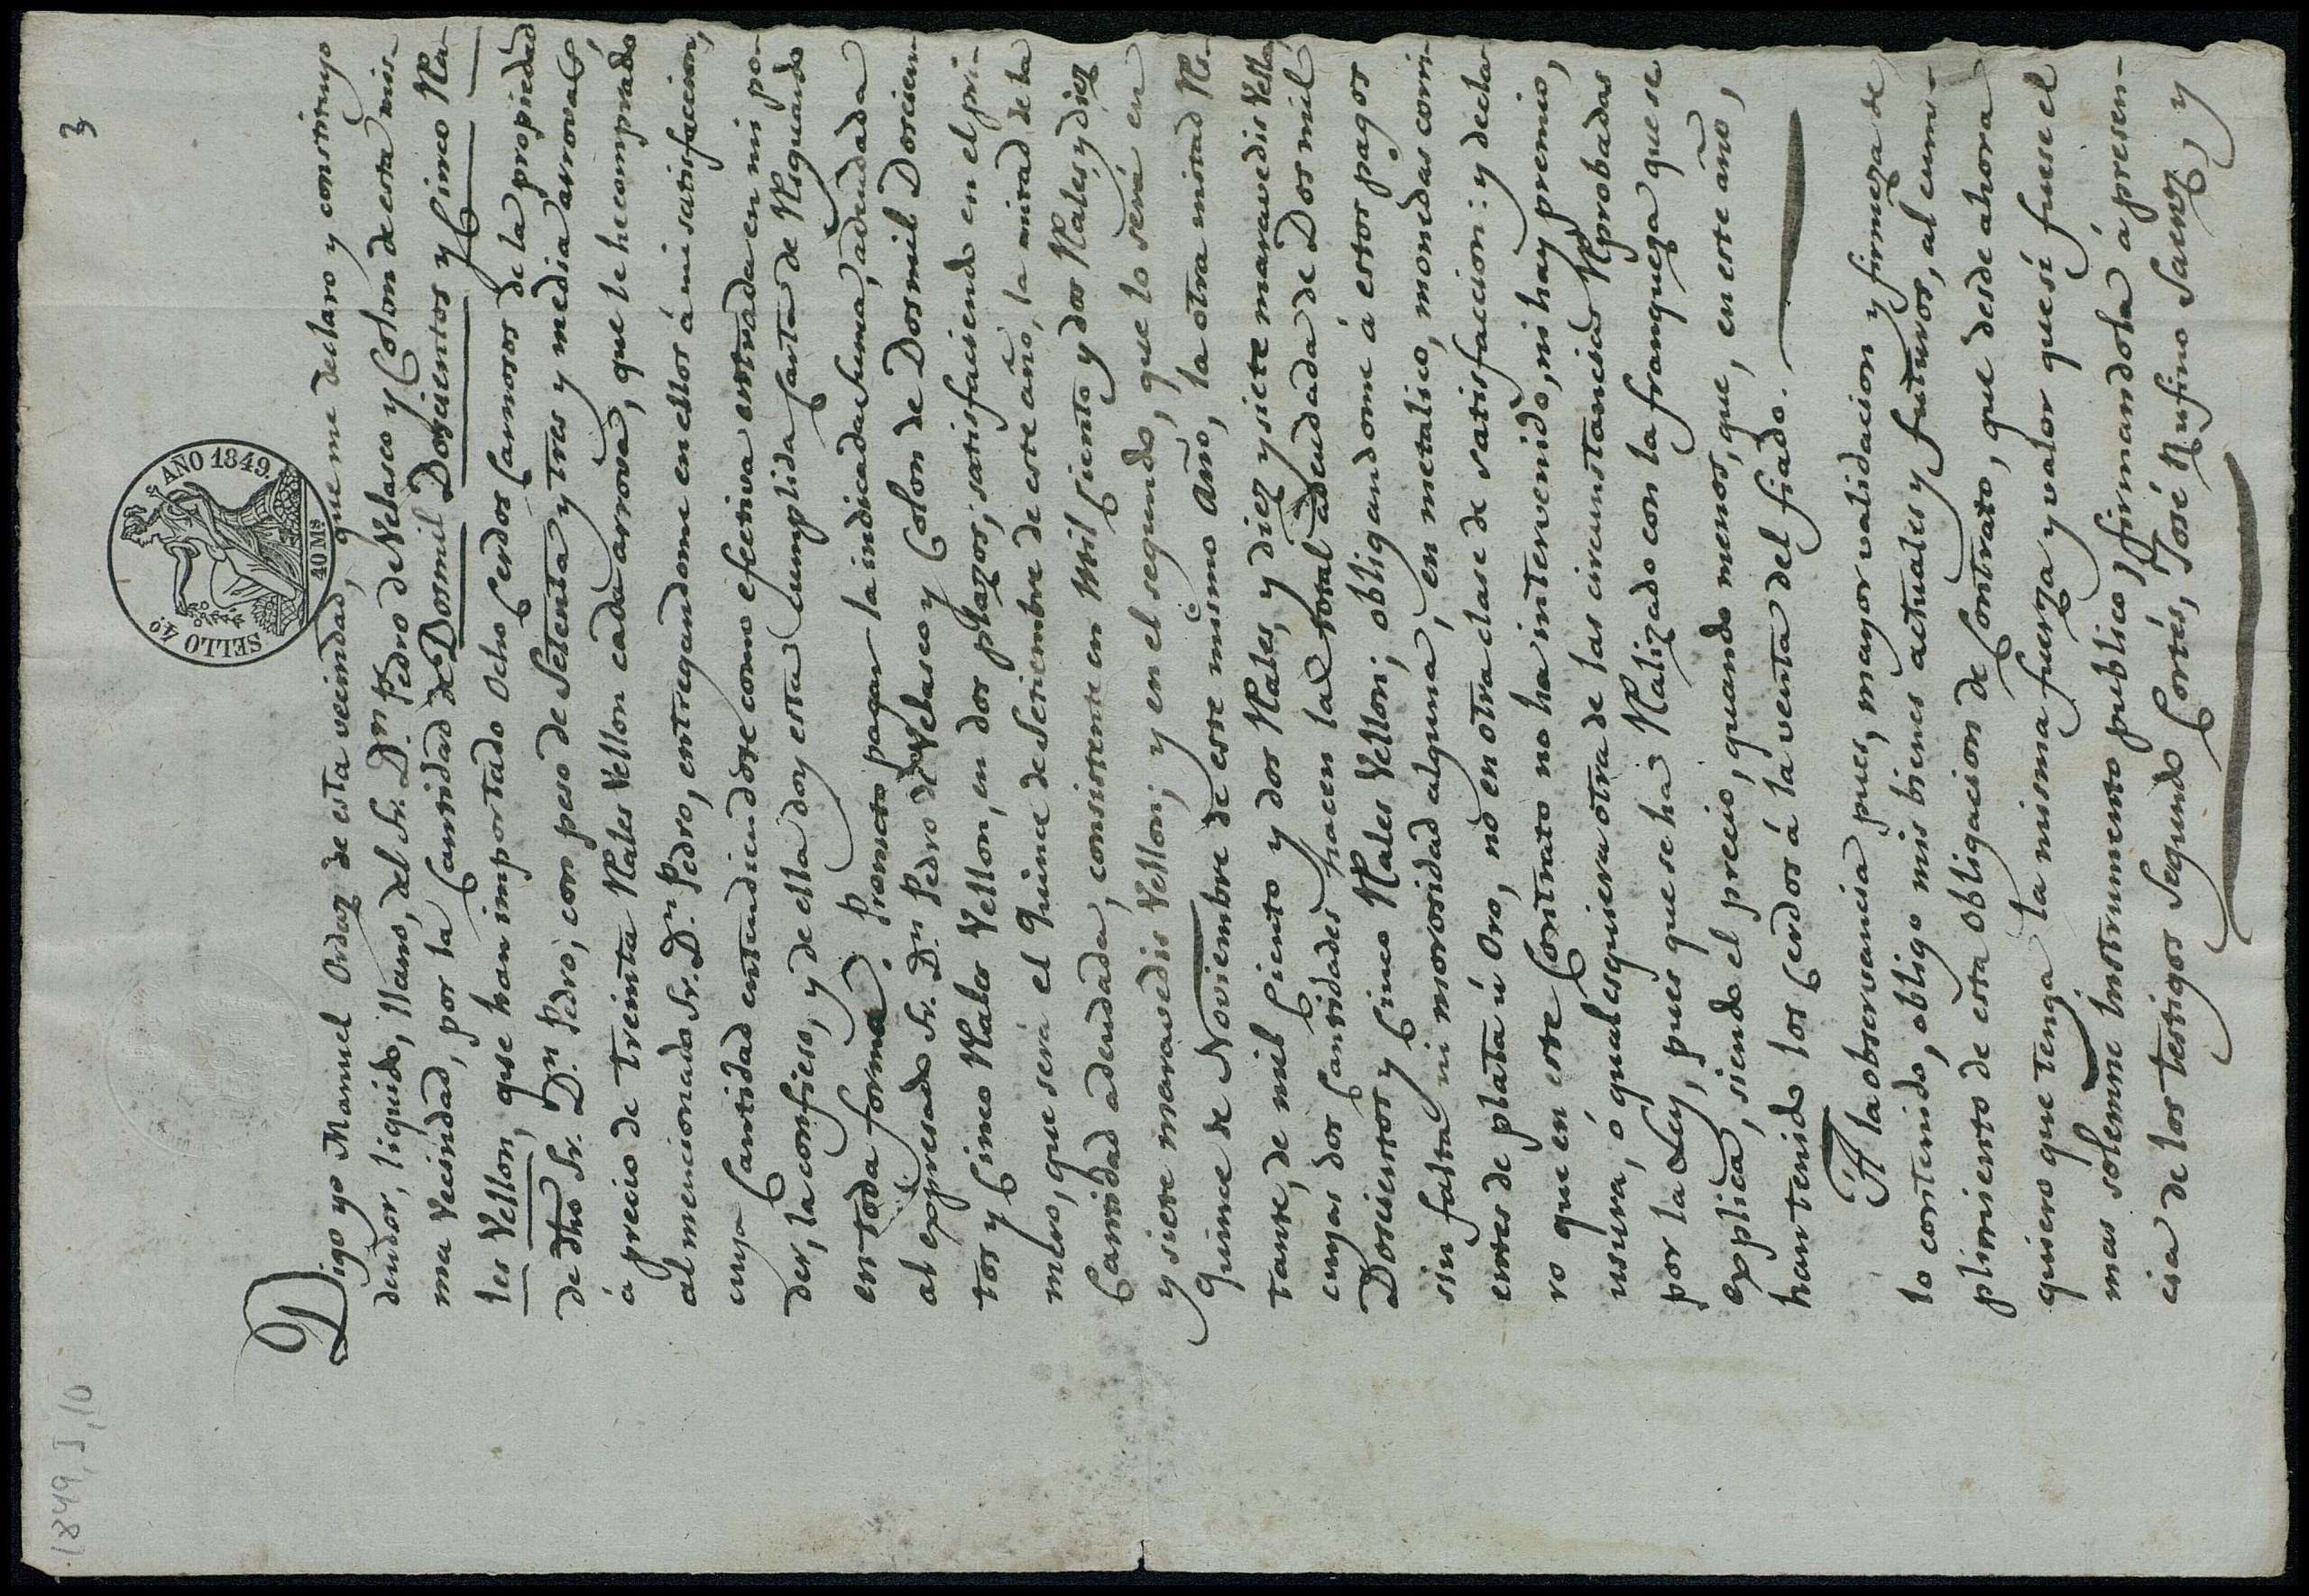 1849, J, 10
3
SELLO 4.º AÑO 1849.
40 Ms
Digo yo Manuel Ordaz de esta vecindad, que me declaro y constituyo
deudor, liquido, llano, del Sr. D.n Pedro de Velasco y Colon de esta mis-
ma Vecindad, por la Cantidad de Dosmil Doscientos y Cinco Rea-
les Vellon, que han importado Ocho Cerdos Carnosos de la propiedad
de dho Sr. D.n Pedro; con peso de Setenta y tres y media arrovas,
á precio de treinta Reales Vellon cada arrova, que le he comprado
al mencionado Sr. D.n Pedro, entregandome en ellos á mi satisfaccion,
cuya Cantidad entendiendose como efectiva entrada en mi po-
der, la confieso, y de ella doy esta cumplida Carta de Resguardo
en toda forma. Prometo pagar la indicada suma, adeudada
al expresado Sr. D.n Pedro de Velasco y Colon de Dosmil Doscien-
tos y Cinco Reales Vellon, en dos plazos; satisfaciendo en el pri-
mero, que será el Quince de Setiembre de este año, la mitad de la
Cantidad adeudada, consistente en Mil Ciento y dos Reales y diez
y siete maravedis Vellon; y en el segundo, que lo será en
Quince de Noviembre de este mismo año, la otra mitad Res-
tante, de mil Ciento y dos Reales, y diez y siete maravedis Vellon,
cuyas dos Cantidades hacen la total adeudada de Dos mil
Doscientos y Cinco Reales Vellon; obligandome á estos pagos
sin falta ni morosidad alguna, en metalico, monedas corri-
entes de plata ú Oro, no en otra clase de satisfaccion: y decla-
ro que en este Contrato no ha intervenido, ni hay premio,
usura, ó qualesquiera otra de las circunstancias Reprobadas
por la Ley, pues que se ha Realizado con la franqueza que se
explica, siendo el precio, quando menos, que, en este año,
han tenido los Cerdos á la venta del fiado.
A la observancia pues, mayor validacion y firmeza de
lo contenido, obligo mis bienes actuales y futuros, al cum-
plimiento de esta Obligacion de Contrato, que desde ahora
quiero que tenga la misma fuerza y valor que si fuese el
mas solemne Instrumento publico, firmandola á presen-
cia de los testigos Segundo Cortés, José Rufino Saenz, y